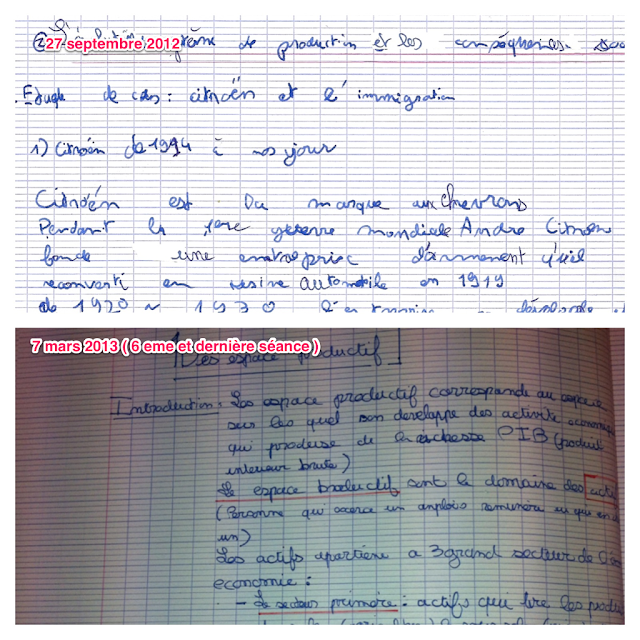 27 septembre 2012
de production et les conséquences
Etude de cas : citroën et l'immigration
1) Citroën de 1994 à nos jour
Citroén est Du marque aux chevrons
Pendant la 1ere guerre mondiale André Citroen
fonde une entreprise d'armement qu'il
reconverti en usine automobile en 1919
de 1920 à 1930 l'entreprise
7 mars 2013 ( 6 eme et dernière séance )
Des espace productif
Introduction : Les espace productif corresponde au espace
sur les quel son developpe des activité
qui produise de la richesse PIB (produit
interieur brute)
Le espace productif sont le domaine des actif
(Personne qui exerce un emplois remunéré ou qui en
un)
Les actifs apartiene a 3 grand secteur de
economie :
- Le secteur primaire : actifs qui tire les